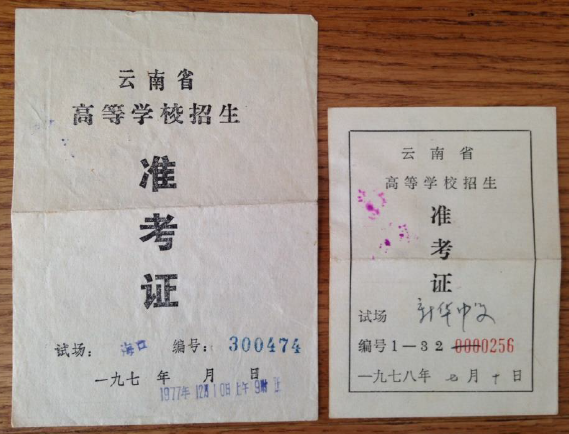 云南省
高等学校招生
准
考
证
试场： 海口 编号： 300474
一九七 年 月 日
1977年12月10日上午9时正
云南省
高等学校招生
准
考
证
试场 新华中学
编号1—32 0000256
一九七八年 七月 十日